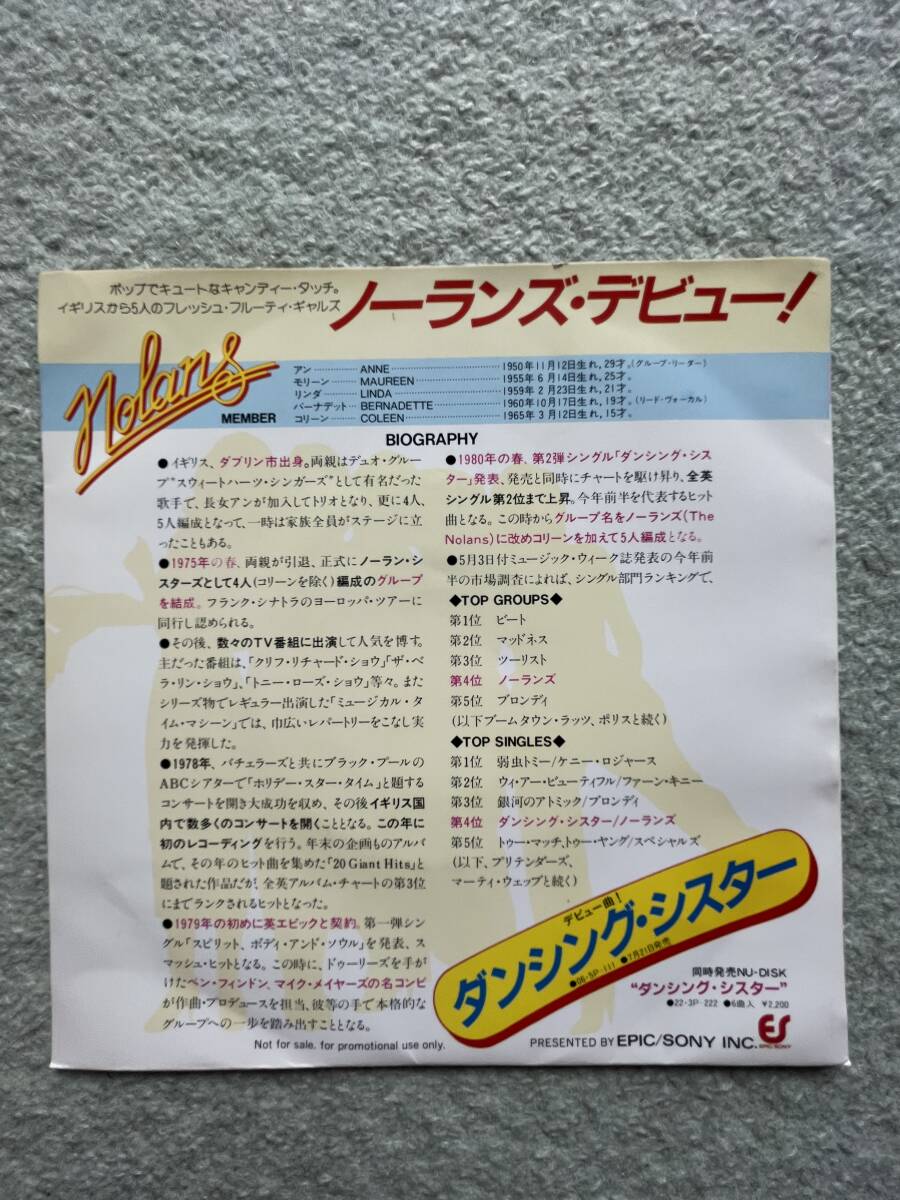 ポップでキュートなキャンディー・タッチ。
イギリスから5人のフレッシュ・フルーティ・ギャルズ
ノーランズ・デビュー!
Nolans
MEMBER
アン ANNE 1950年11月12日生れ,29才。(グループ・リーダー)
モリーン MAUREEN 1955年6月14日生れ,25才。
リンダ LINDA 1959年2月23日生れ,21才。
バーナデット BERNADETTE 1960年10月17日生れ,19才。(リード・ヴォーカル)
コリーン COLEEN 1965年3月12日生れ,15才。
BIOGRAPHY
●イギリス、ダブリン市出身。両親はデュオ・グルー
プ“スウィートハーツ・シンガーズ”として有名だった
歌手で、長女アンが加入してトリオとなり、更に4人、
5人編成となって、一時は家族全員がステージに立
ったこともある。
●1975年の春、両親が引退、正式にノーラン・シ
スターズとして4人(コリーンを除く)編成のグループ
を結成。フランク・シナトラのヨーロッパ・ツアーに
同行し認められる。
●その後、数々のTV番組に出演して人気を博す。
主だった番組は、「クリフ・リチャード・ショウ」「ザ・ベ
ラ・リン・ショウ」、「トニー・ローズ・ショウ」等々。また
シリーズ物でレギュラー出演した「ミュージカル・タ
イム・マシーン」では、巾広いレパートリーをこなし実
力を発揮した。
●1978年、バチェラーズと共にブラック・プールの
ABCシアターで「ホリデー・スター・タイム」と題する
コンサートを開き大成功を収め、その後イギリス国
内で数多くのコンサートを開くこととなる。この年に
初のレコーディングを行う。年末の企画ものアルバ
ムで、その年のヒット曲を集めた「20 Giant Hits」と
題された作品だが、全英アルバム・チャートの第3位
にまでランクされるヒットとなった。
●1979年の初めに英エピックと契約。第一弾シン
グル「スピリット、ボディ・アンド・ソウル」を発表、ス
マッシュ・ヒットとなる。この時に、ドゥーリーズを手が
けたベン・フィンドン、マイク・メイヤーズの名コンビ
が作曲・プロデュースを担当、彼等の手で本格的な
グループへの一歩を踏み出すこととなる。
●1980年の春、第2弾シングル「ダンシング・シス
ター」発表、発売と同時にチャートを駆け昇り、全英
シングル第2位まで上昇。今年前半を代表するヒット
曲となる。この時からグループ名をノーランズ(The
Nolans)に改めコリーンを加えて5人編成となる。
●5月3日付ミュージック・ウィーク誌発表の今年前
半の市場調査によれば、シングル部門ランキングで、
◆TOP GROUPS◆
第1位 ビート
第2位 マッドネス
第3位 ツーリスト
第4位 ノーランズ
第5位 ブロンディ
(以下ブームタウン・ラッツ、ポリスと続く)
◆TOP SINGLES◆
第1位 弱虫トミー/ケニー・ロジャース
第2位 ウィ・アー・ビューティフル/ファーン・キニー
第3位 銀河のアトミック/ブロンディ
第4位 ダンシング・シスター/ノーランズ
第5位 トゥー・マッチ、トゥー・ヤング/スペシャルズ
(以下、プリテンダーズ、
マーティ・ウェッブと続く)
デビュー曲!
ダンシング・シスター
●06・5P-111 ●7月21日発売
同時発売NU-DISK
“ダンシング・シスター”
●22・3P-222 ●6曲入 ¥2,200
Not for sale. for promotional use only.
PRESENTED BY EPIC/SONY INC.
ES
EPIC/SONY